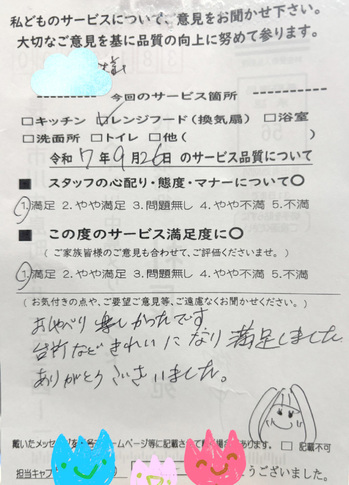 私どものサービスについて、意見をお聞かせ下さい。
大切なご意見を基に品質の向上に努めて参ります。
様
今回のサービス箇所
□キッチン ☑レンジフード(換気扇) □浴室
□洗面所 □トイレ □他( )
令和 7年 9月 26日 のサービス品質について
■ スタッフの心配り・態度・マナーについて〇
1.満足 2.やや満足 3.問題無し 4.やや不満 5.不満
■ この度のサービス満足度に〇
(ご家族皆様のご意見も合わせて、ご評価くださいませ。)
1.満足 2.やや満足 3.問題無し 4.やや不満 5.不満
(お気付きの点や、ご要望ご意見等、ご遠慮なくお聞かせください。)
おしゃべり楽しかったです
台所などきれいになり満足しました
ありがとうございました。
戴いたメッセ
ホームページ等に記載させて
あります。 □記載不可
担当キャプ
うございました。